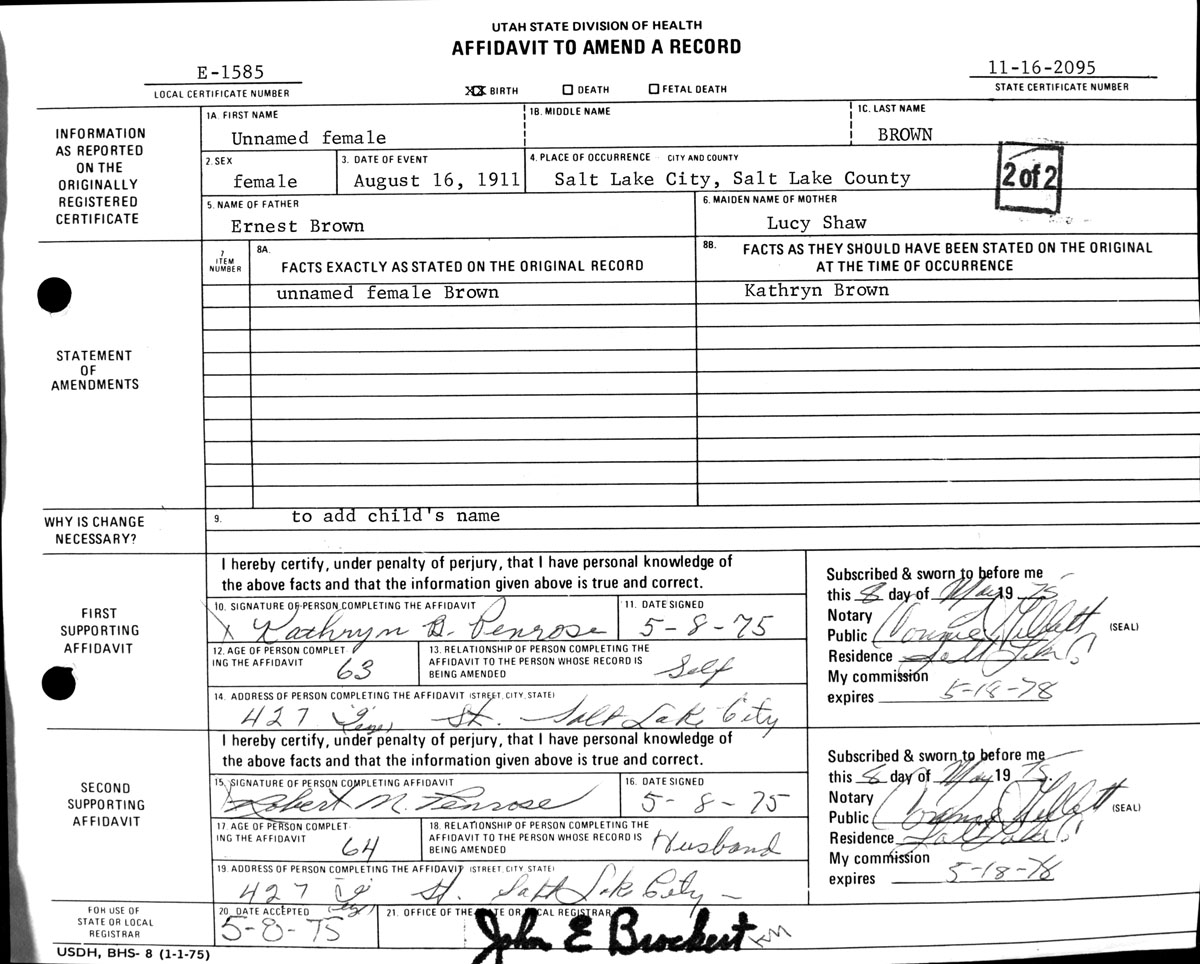 UTAH STATE DIVISION OF HEALTH
AFFIDAVIT TO AMEND A RECORD
E-1585
LOCAL CERTIFICATE NUMBER
XX BIRTH
DEATH
FETAL DEATH
11-16-2095
STATE CERTIFICATE NUMBER
INFORMATION
AS REPORTED
ON THE
ORIGINALLY
REGISTERED
CERTIFICATE
1A. FIRST NAME
Unnamed female
1B. MIDDLE NAME
1C. LAST NAME
BROWN
2. SEX
female
3. DATE OF EVENT
August 16, 1911
4. PLACE OF OCCURRENCE CITY AND COUNTY
Salt Lake City, Salt Lake County
2 of 2
5. NAME OF FATHER
Ernest Brown
6. MAIDEN NAME OF MOTHER
Lucy Shaw
STATEMENT
OF
AMENDMENTS
7
ITEM
NUMBER
8A.
FACTS EXACTLY AS STATED ON THE ORIGINAL RECORD
8B.
FACTS AS THEY SHOULD HAVE BEEN STATED ON THE ORIGINAL
AT THE TIME OF OCCURRENCE
unnamed female Brown
Kathryn Brown
WHY IS CHANGE
NECESSARY?
9.
to add child's name
FIRST
SUPPORTING
AFFIDAVIT
I hereby certify, under penalty of perjury, that I have personal knowledge of
the above facts and that the information given above is true and correct.
10. SIGNATURE OF PERSON COMPLETING THE AFFIDAVIT
X Kathryn B. Penrose
11. DATE SIGNED
5-8-75
12. AGE OF PERSON COMPLET
ING THE AFFIDAVIT
63
13. RELATIONSHIP OF PERSON COMPLETING THE
AFFIDAVIT TO THE PERSON WHOSE RECORD IS
BEING AMENDED
Self
14. ADDRESS OF PERSON COMPLETING THE AFFIDAVIT (STREET, CITY, STATE)
427 St. Salt Lake City
Subscribed & sworn to before me
this 8 day of May 19 75
Notary
Public Connie Gillett
(SEAL)
Residence Salt Lake
My commission
expires 5-18-78
SECOND
SUPPORTING
AFFIDAVIT
I hereby certify, under penalty of perjury, that I have personal knowledge of
the above facts and that the information given above is true and correct.
15. SIGNATURE OF PERSON COMPLETING AFFIDAVIT
Robert M. Penrose
16. DATE SIGNED
5-8-75
17. AGE OF PERSON COMPLET
ING THE AFFIDAVIT
64
18. RELATIONSHIP OF PERSON COMPLETING THE
AFFIDAVIT TO THE PERSON WHOSE RECORD IS
BEING AMENDED
Husband
19. ADDRESS OF PERSON COMPLETING THE AFFIDAVIT (STREET, CITY, STATE)
427 St. Salt Lake City
Subscribed & sworn to before me
this 8 day of May 19 75.
Notary
Public Connie Gillett
(SEAL)
Residence Salt Lake
My commission
expires 5-18-78
FOR USE OF
STATE OR LOCAL
REGISTRAR
20. DATE ACCEPTED
5-8-75
21. OFFICE OF THE STATE OR LOCAL REGISTRAR
John E Brockert
USDH, BHS- 8 (1-1-75)